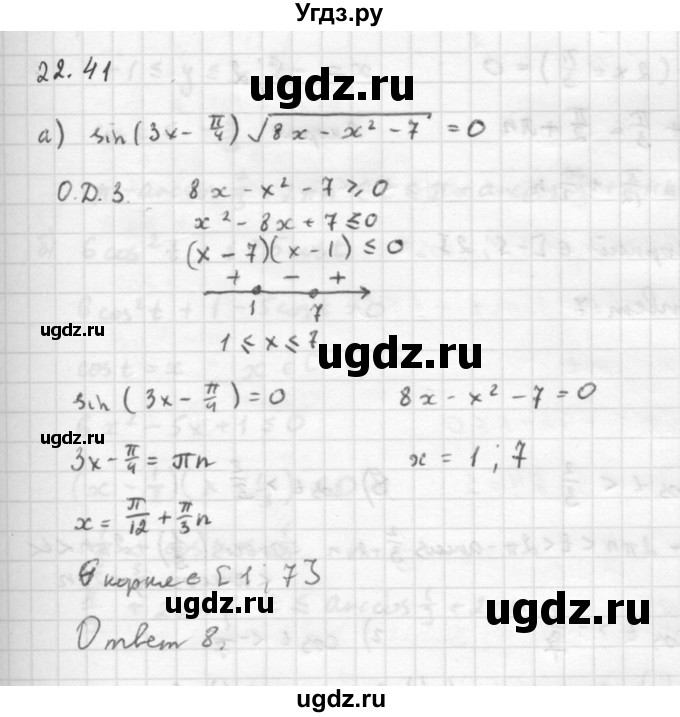 Угдз.ру
22.41
ugdz.ru
а) sin(3x - π/4) √(8x - x² - 7) = 0
О.Д.З. 8x - x² - 7 ⩾ 0
x² - 8x + 7 ≤ 0
(x - 7)(x - 1) ≤ 0
+ - +
1 7
ugdz.ru
1 ≤ x ≤ 7
ugdz.ru
sin(3x - π/4) = 0 8x - x² - 7 = 0
3x - π/4 = πn x = 1; 7
ugdz.ru
x = π/12 + π/3 n
6 корне ∈ [1; 7]
ugdz.ru ugdz.ru
Ответ 8.
ugdz.ru
ugdz.ru